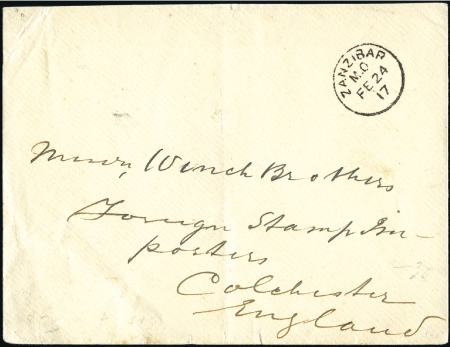 ZANZIBAR
M.O
FE 24
17
Messrs, Winch Brothers
Foreign Stamp Im-
porters
Colchester
England